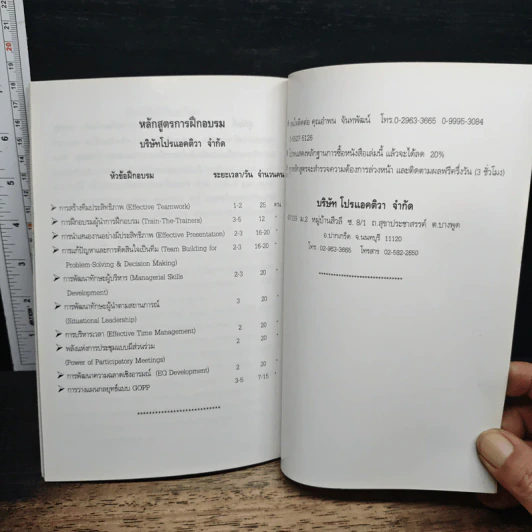 หลักสูตรการฝึกอบรม
บริษัทโปรแอคติวา จำกัด
หัวข้อฝึกอบรม ระยะเวลา/วัน จำนวนคน
➤ การสร้างทีมประสิทธิภาพ (Effective Teamwork) 1-2 25 คน
➤ การฝึกอบรมผู้นำการฝึกอบรม (Train-The-Trainers) 3-5 12 "
➤ การนำเสนองานอย่างมีประสิทธิภาพ (Effective Presentation) 2-3 16-20 "
➤ การแก้ปัญหาและการตัดสินใจเป็นทีม (Team Building for 2-3 16-20 "
Problem-Solving & Decision Making)
➤ การพัฒนาทักษะผู้บริหาร (Managerial Skills 2-3 20 "
Development)
➤ การพัฒนาทักษะผู้นำตามสถานการณ์ 3 20 "
(Situational Leadership)
➤ การบริหารเวลา (Effective Time Management) 2 20 "
➤ พลังแห่งการประชุมแบบมีส่วนร่วม 2 20 "
(Power of Participatory Meetings)
➤ การพัฒนาความฉลาดเชิงอารมณ์ (EQ Development) 2 20 "
➤ การวางแผนกลยุทธ์แบบ GOPP 3-5 7-15 "
***************************
คุณอำพน จันทพัฒน์ โทร.0-2963-3665 0-9995-3094
-8527-5126
แสดงหลักฐานการซื้อหนังสือเล่มนี้ แล้วจะได้ลด 20%
หลักสูตรจะสำรวจความต้องการล่วงหน้า และติดตามผลฟรีครึ่งวัน (3 ชั่วโมง)
บริษัท โปรแอคติวา จำกัด
ม.2 หมู่บ้านสิวลี ซ. 8/1 ถ.สุขาประชาสรรค์ ต.บางพูด
อ.ปากเกร็ด จ.นนทบุรี 11120
โทร 02-963-3665 โทรสาร 02-582-2650
***************************